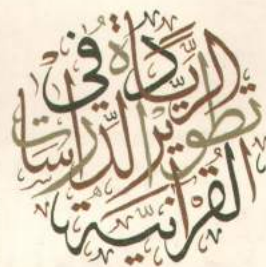 الرِّيَادَة في
تطوير الدِّرَاسَات
القُرْآنِيَّة